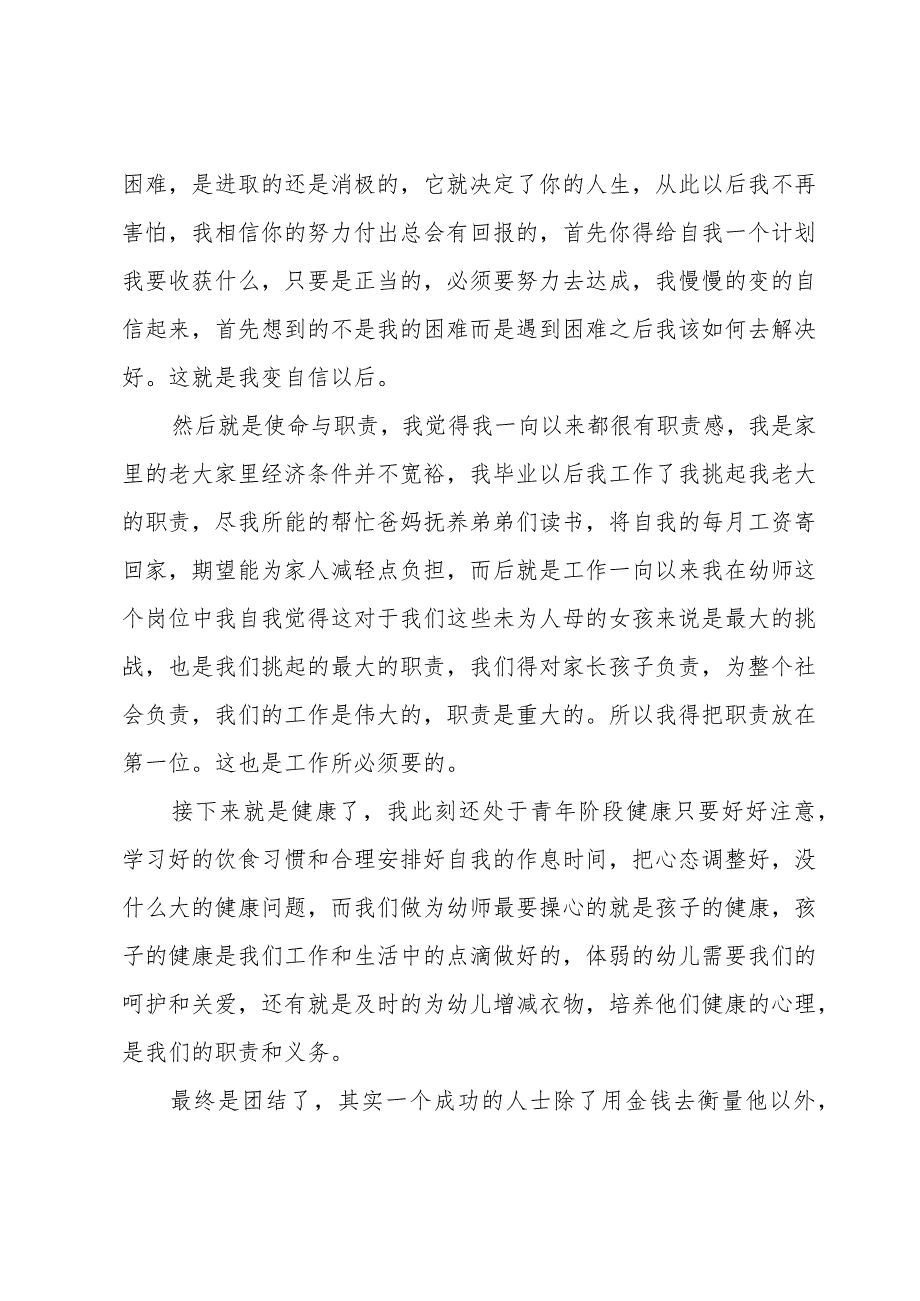 困难，是进取的还是消极的，它就决定了你的人生，从此以后我不再
害怕，我相信你的努力付出总会有回报的，首先你得给自我一个计划
我要收获什么，只要是正当的，必须要努力去达成，我慢慢的变的自
信起来，首先想到的不是我的困难而是遇到困难之后我该如何去解决
好。这就是我变自信以后。
然后就是使命与职责，我觉得我一向以来都很有职责感，我是家
里的老大家里经济条件并不宽裕，我毕业以后我工作了我挑起我老大
的职责，尽我所能的帮忙爸妈抚养弟弟们读书，将自我的每月工资寄
回家，期望能为家人减轻点负担，而后就是工作一向以来我在幼师这
个岗位中我自我觉得这对于我们这些未为人母的女孩来说是最大的挑
战，也是我们挑起的最大的职责，我们得对家长孩子负责，为整个社
会负责，我们的工作是伟大的，职责是重大的。所以我得把职责放在
第一位。这也是工作所必须要的。
接下来就是健康了，我此刻还处于青年阶段健康只要好好注意，
学习好的饮食习惯和合理安排好自我的作息时间，把心态调整好，没
什么大的健康问题，而我们做为幼师最要操心的就是孩子的健康，孩
子的健康是我们工作和生活中的点滴做好的，体弱的幼儿需要我们的
呵护和关爱，还有就是及时的为幼儿增减衣物，培养他们健康的心理，
是我们的职责和义务。
最终是团结了，其实一个成功的人士除了用金钱去衡量他以外，